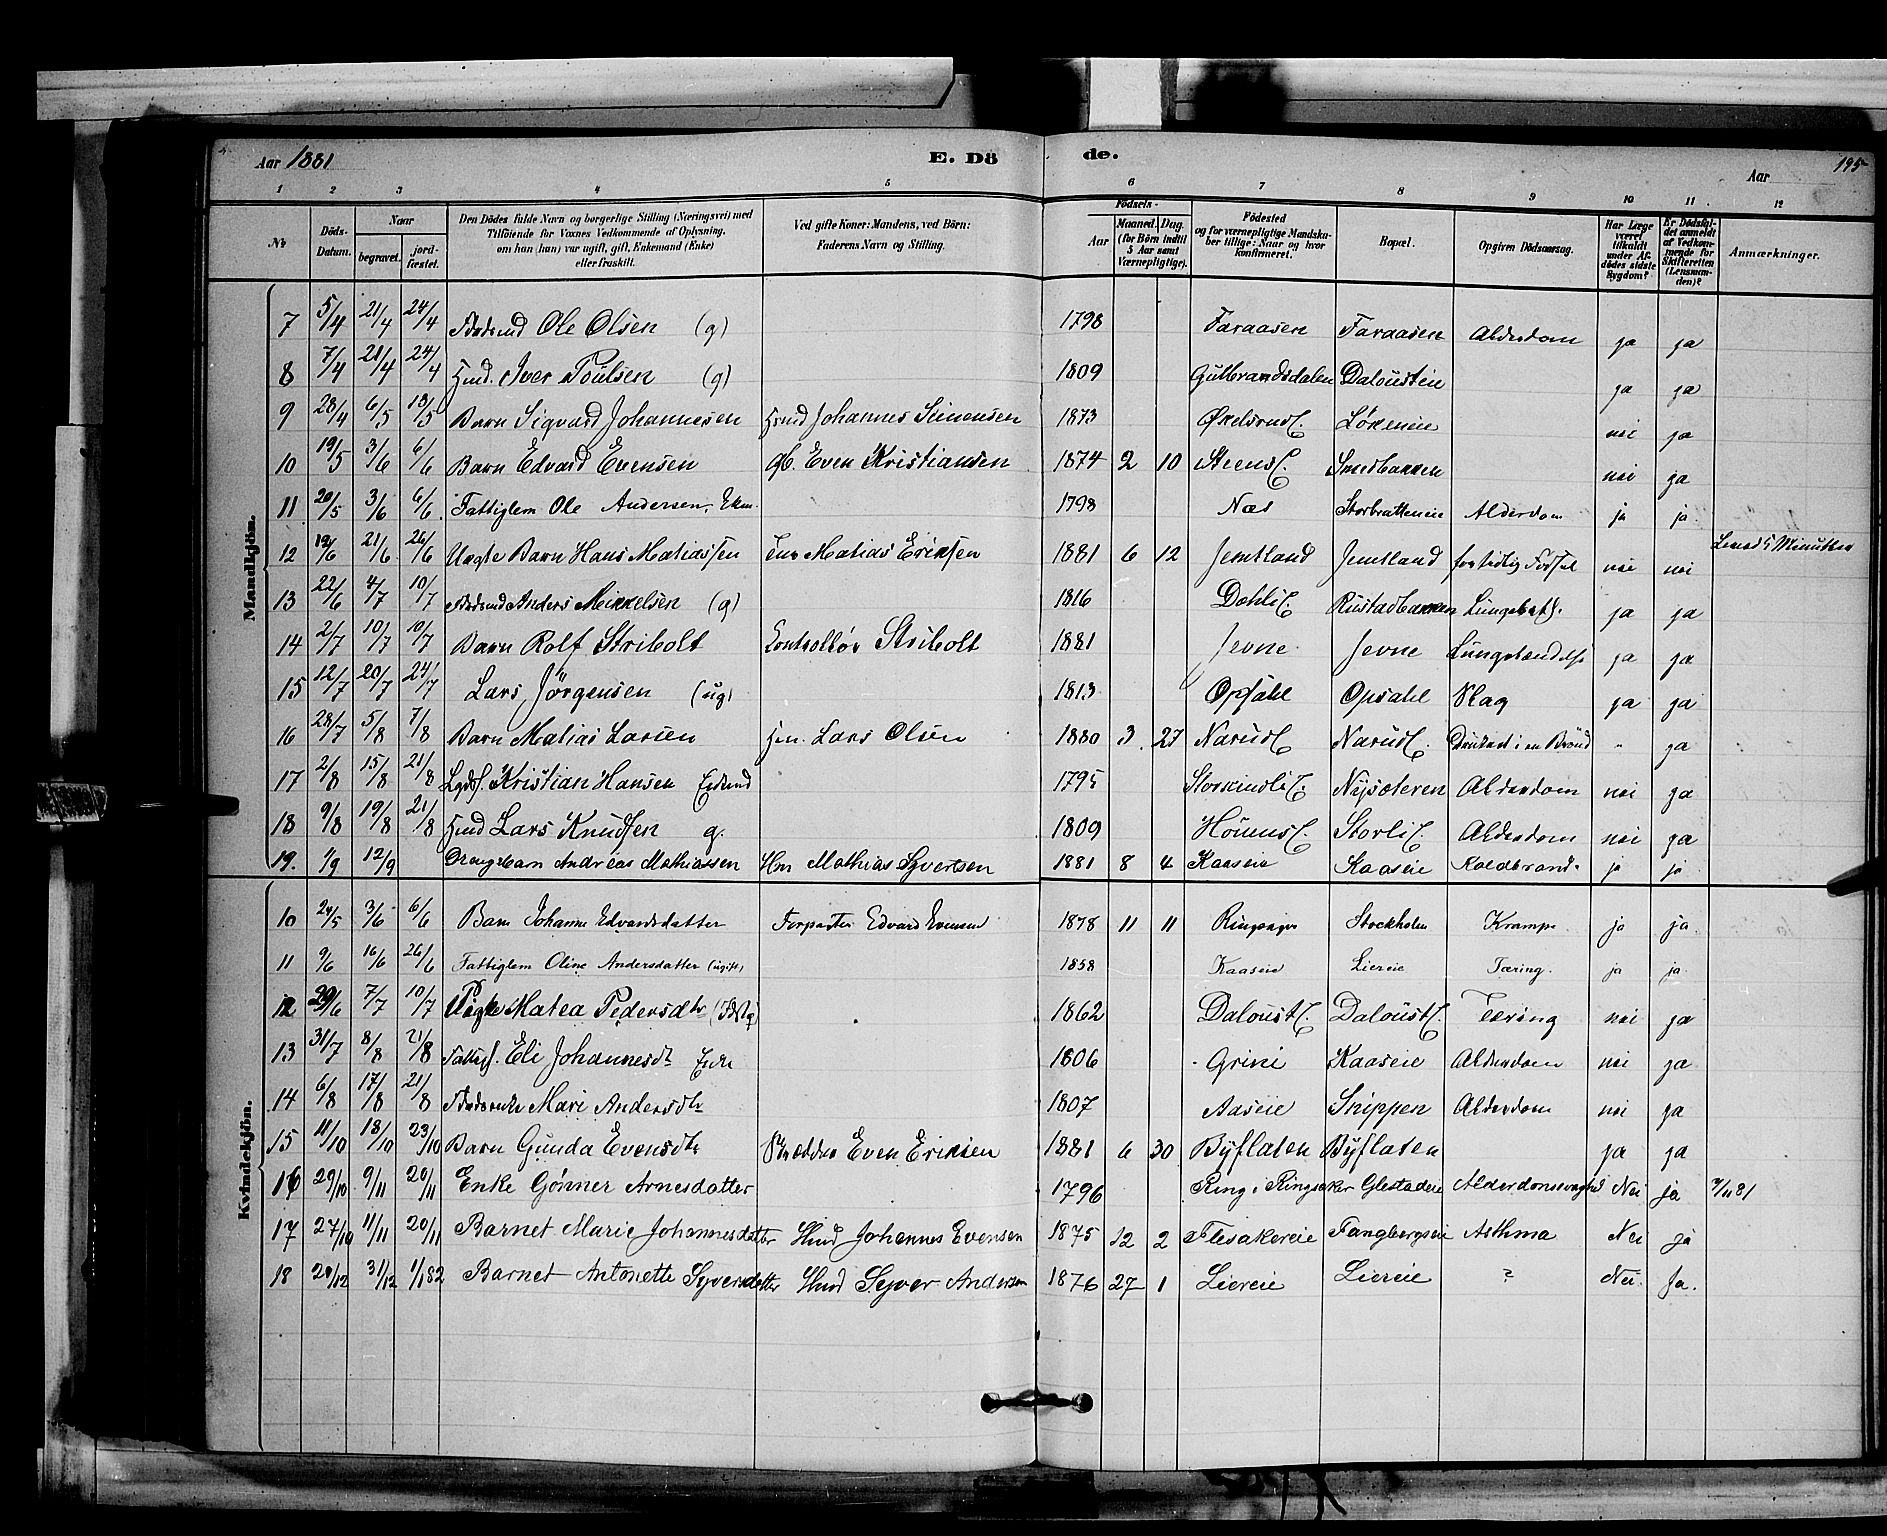 Aar 1881 E. Dö de. Aar 195
1 2 3 4 5 6 7 8 9 10 11 12
No
Döds-Datum.
Naar
begravet.
jord-fæstet.
Den Dödes fulde Navn og borgerlige Stilling (Næringsvei) med
Tilföiende for Voxnes Vedkommende af Oplysning,
om han (hun) var ugift, gift, Enkemand (Enke)
eller fraskilt.
Ved gifte Koner: Mandens, ved Börn:
Faderens Navn og Stilling.
Födsels-
Aar
Maaned. Dag.
(for Börn indtil
5 Aar samt
Værnepligtige).
Födested
og for værnepligtige Mandska-
ber tillige: Naar og hvor
konfirmeret.
Bopæl.
Opgiven Dödsaarsag.
Har Læge
været
tilkaldt
under Af-
dödes sidste
Sygdom?
Er Dödsfal-
det anmeldt
af Vedkom-
mende for
Skifteretten
(Lensman-
den)?
Anmærkninger.
Mandkjön.
7 5/4 21/4 24/4 Ole Olsen (g) 1798 Faraasen Faraasen Alderdom ja ja
8 7/4 21/4 24/4 Hmd. Iver Poulsen (g) 1809 Gulbrandsdalen Daloustein ja ja
9 28/4 6/5 13/5 Barn Sigvard Johannesen Hmd Johannes Simensen 1873 Lökeneie nei ja
10 19/5 3/6 6/6 Barn Edvard Evensen gb. Even Kristiansen 1874 2 10 Steens Smedbakken nei ja
11 20/5 3/6 6/6 Fattiglem Ole Andersen, Ekm. 1798 Næs Storbratteneie Alderdom ja ja
12 12/6 21/6 26/6 Uægte Barn Hans Matiasſen Matias Erikſen 1881 6 12 Jemtland Jemtland for tidlig Födſel nei nei Leved 5 Minutter
13 22/6 4/7 10/7 Anders Mikkelsen (g) 1816 Dohli Rustadbakken Lungebet. ja ja
14 2/7 10/7 10/7 Barn Rolf Stribolt Kontrollör Stribolt 1881 Jevne Jevne ja ja
15 12/7 20/7 24/7 Lars Jörgensen (ug) 1813 Opſahl Opsahl Slag ja ja
16 28/7 5/8 7/8 Barn Matias Larsen Hm. Lars Olsen 1880 3 27 Narud Narud Druknet i en Brönd " ja
17 2/8 15/8 21/8 Kristian Hansen 1795 Nysæteren Alderdom nei ja
18 9/8 19/8 21/8 Hmd Lars Knudſen g. 1809 Storli Alderdom nei ja
19. 1/9 12/9 Drengebarn Andreas Mathiassen Hm Mathias Syvertsen 1881 8 4 Kaaseie Kaaseie Koldbrand. ja ja
Kvindekjön.
10 24/5 3/6 6/6 Barn Johanne Edvardsdatter Forpagter Edvard Evensen 1878 11 11 Ringsager Stockholm Krampe ja ja
11 9/6 16/6 26/6 Fattiglem Oline Andersdatter (ugift) 1858 Kaaseie Liereie Tæring. ja ja
12 29/6 7/7 10/7 Pige Matea Pedersdtr 1862 Daloust Daloust Tæring nei ja
13 31/7 8/8 21/8 Eli Johannesdt Enke 1806 Grini Kaaseie Alderdom nei ja
14 6/8 17/8 21/8 Mari Andersdtr 1807 Aaseie Snippen Alderdom nei ja
15 11/10 18/10 23/10 Barn Gunda Evensdtr Skrædder Even Eriksen 1881 6 30 Byflaten Byflaten ja ja
16 29/10 9/11 20/11 Enke Gönner Arnesdatter 1796 Ring i Ringsaker Glestadeie Alderdomssvaghed Nei ja 9/11 81
17 27/10 11/11 20/11 Barnet Marie Johannesdatter Hmd Johannes Evensen 1875 12 2 Flesakereie Fangbergseie Asthma Nei ja
18 20/12 31/12 1/1 82 Barnet Antonette Syversdatter Hmd Syver Andersen 1876 27 1 Liereie Liereie ? Nei. Ja.